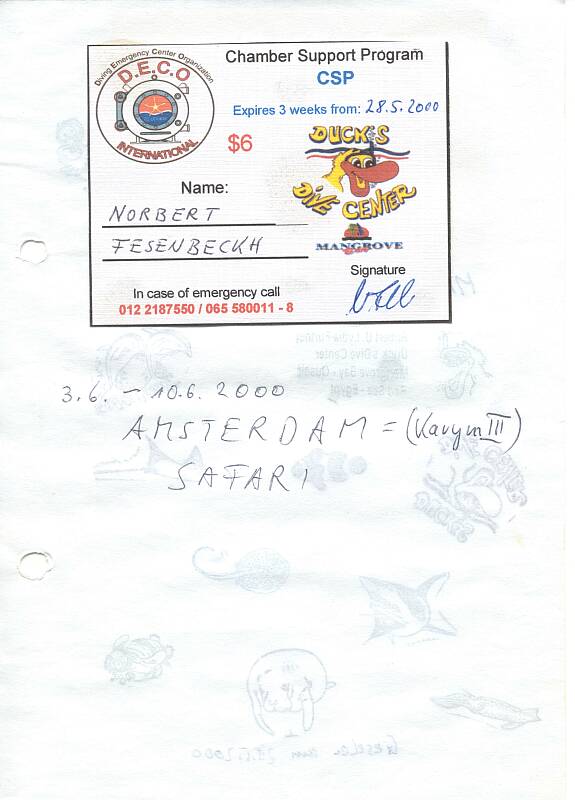 Diving Emergency Center Organization
D.E.C.O
INTERNATIONAL
Chamber Support Program
CSP
Expires 3 weeks from: 28.5.2000
$6
DUCK'S
DIVE CENTER
MANGROVE
Name:
NORBERT
FESENBECKH
Signature
In case of emergency call
012 2187550 / 065 580011 - 8
Duck's Dive Center
Mangrove Bay
3.6. – 10.6. 2000
AMSTERDAM = (Karym III)
SAFARI